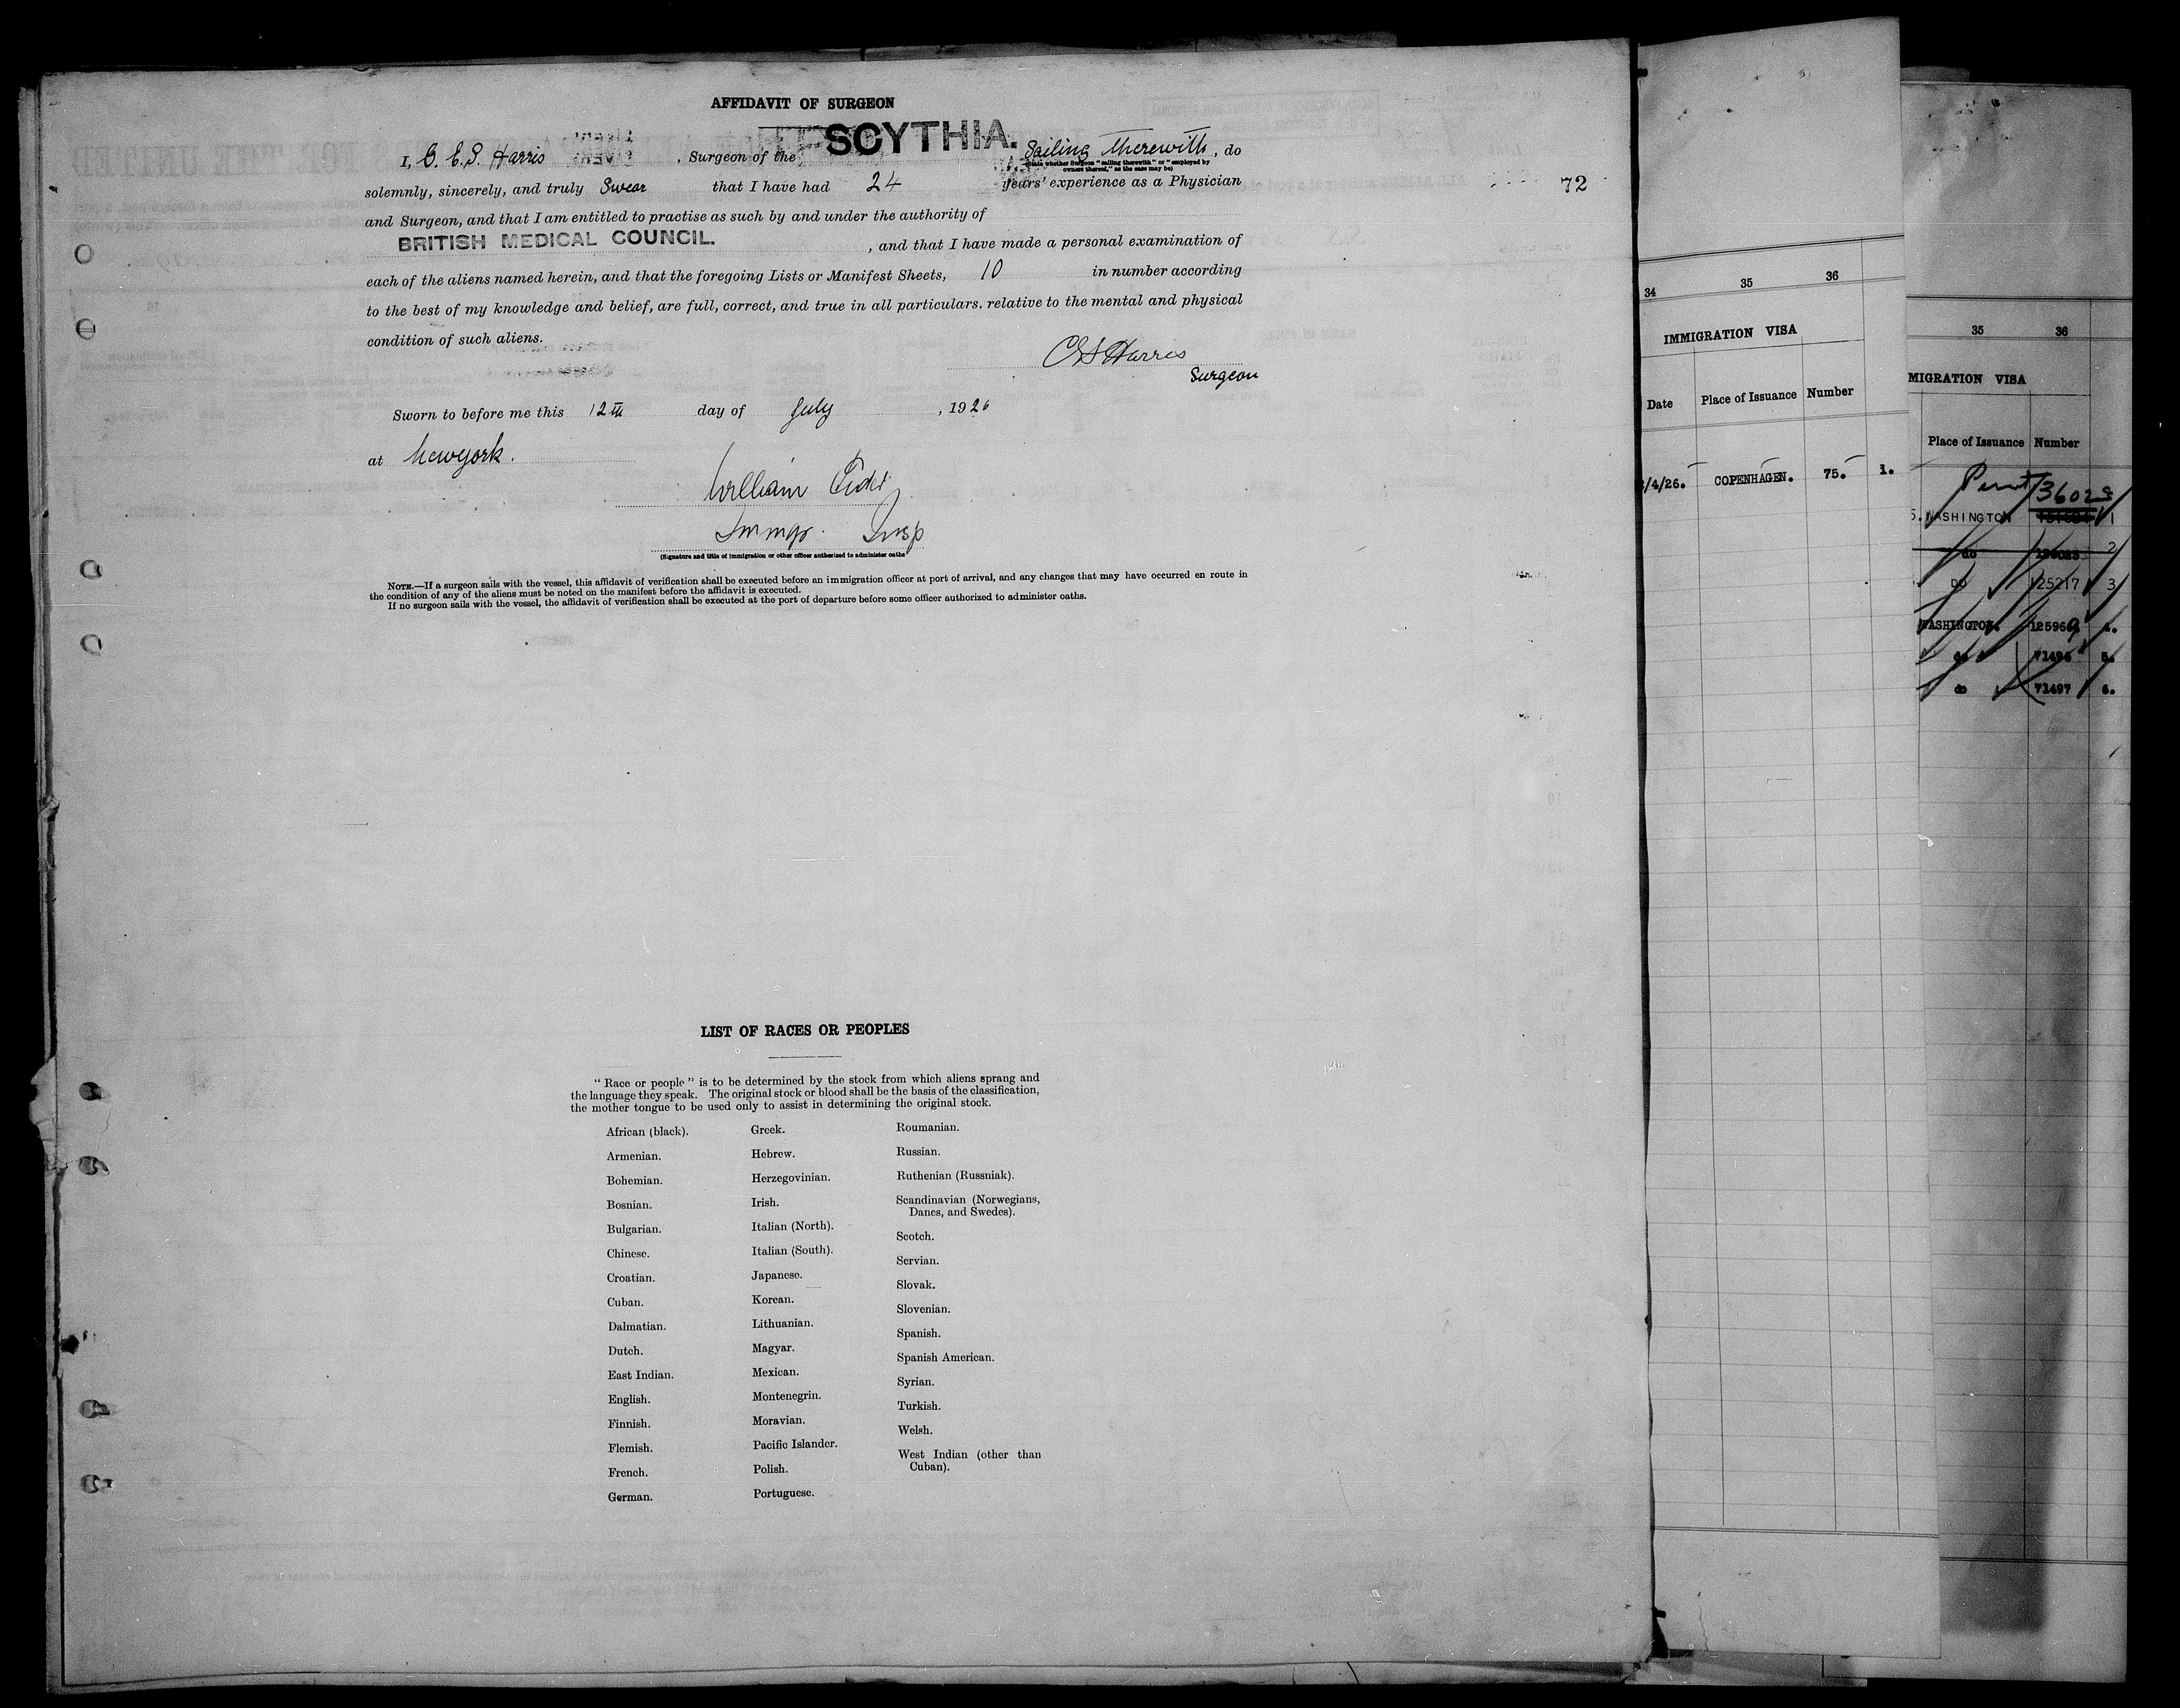 AFFIDAVIT OF SURGEON
I, C. E. S. Harris, Surgeon of the SCYTHIA. Sailing therewith, do
(State whether Surgeon "sailing therewith" or "employed by
owners thereof," as the case may be)
solemnly, sincerely, and truly Swear that I have had 24 years' experience as a Physician
72
and Surgeon, and that I am entitled to practise as such by and under the authority of
BRITISH MEDICAL COUNCIL. , and that I have made a personal examination of
each of the aliens named herein, and that the foregoing Lists or Manifest Sheets, 10 in number according
to the best of my knowledge and belief, are full, correct, and true in all particulars. relative to the mental and physical
condition of such aliens.
CES Harris
Surgeon
Sworn to before me this 12th day of July, 1926
at New York.
William
Immgr. Insp
(Signature and title of immigration or other officer authorized to administer oaths
NOTE.—If a surgeon sails with the vessel, this affidavit of verification shall be executed before an immigration officer at port of arrival, and any changes that may have occurred en route in
the condition of any of the aliens must be noted on the manifest before the affidavit is executed.
If no surgeon sails with the vessel, the affidavit of verification shall be executed at the port of departure before some officer authorized to administer oaths.
LIST OF RACES OR PEOPLES
"Race or people" is to be determined by the stock from which aliens sprang and
the language they speak. The original stock or blood shall be the basis of the classification,
the mother tongue to be used only to assist in determining the original stock.
African (black).
Armenian.
Bohemian.
Bosnian.
Bulgarian.
Chinese.
Croatian.
Cuban.
Dalmatian.
Dutch.
East Indian.
English.
Finnish.
Flemish.
French.
German.
Greek.
Hebrew.
Herzegovinian.
Irish.
Italian (North).
Italian (South).
Japanese.
Korean.
Lithuanian.
Magyar.
Mexican.
Montenegrin.
Moravian.
Pacific Islander.
Polish.
Portuguese.
Roumanian.
Russian.
Ruthenian (Russniak).
Scandinavian (Norwegians,
Danes, and Swedes).
Scotch.
Servian.
Slovak.
Slovenian.
Spanish.
Spanish American.
Syrian.
Turkish.
Welsh.
West Indian (other than
Cuban).
34 35 36
IMMIGRATION VISA
Date Place of Issuance Number
/4/26. COPENHAGEN. 75. 1.
35 36
MIGRATION VISA
Place of Issuance Number
5. WASHINGTON 1
do 2
DO 125217 3
WASHINGTON. 125969 4.
do 71496 5.
do 71497 6.